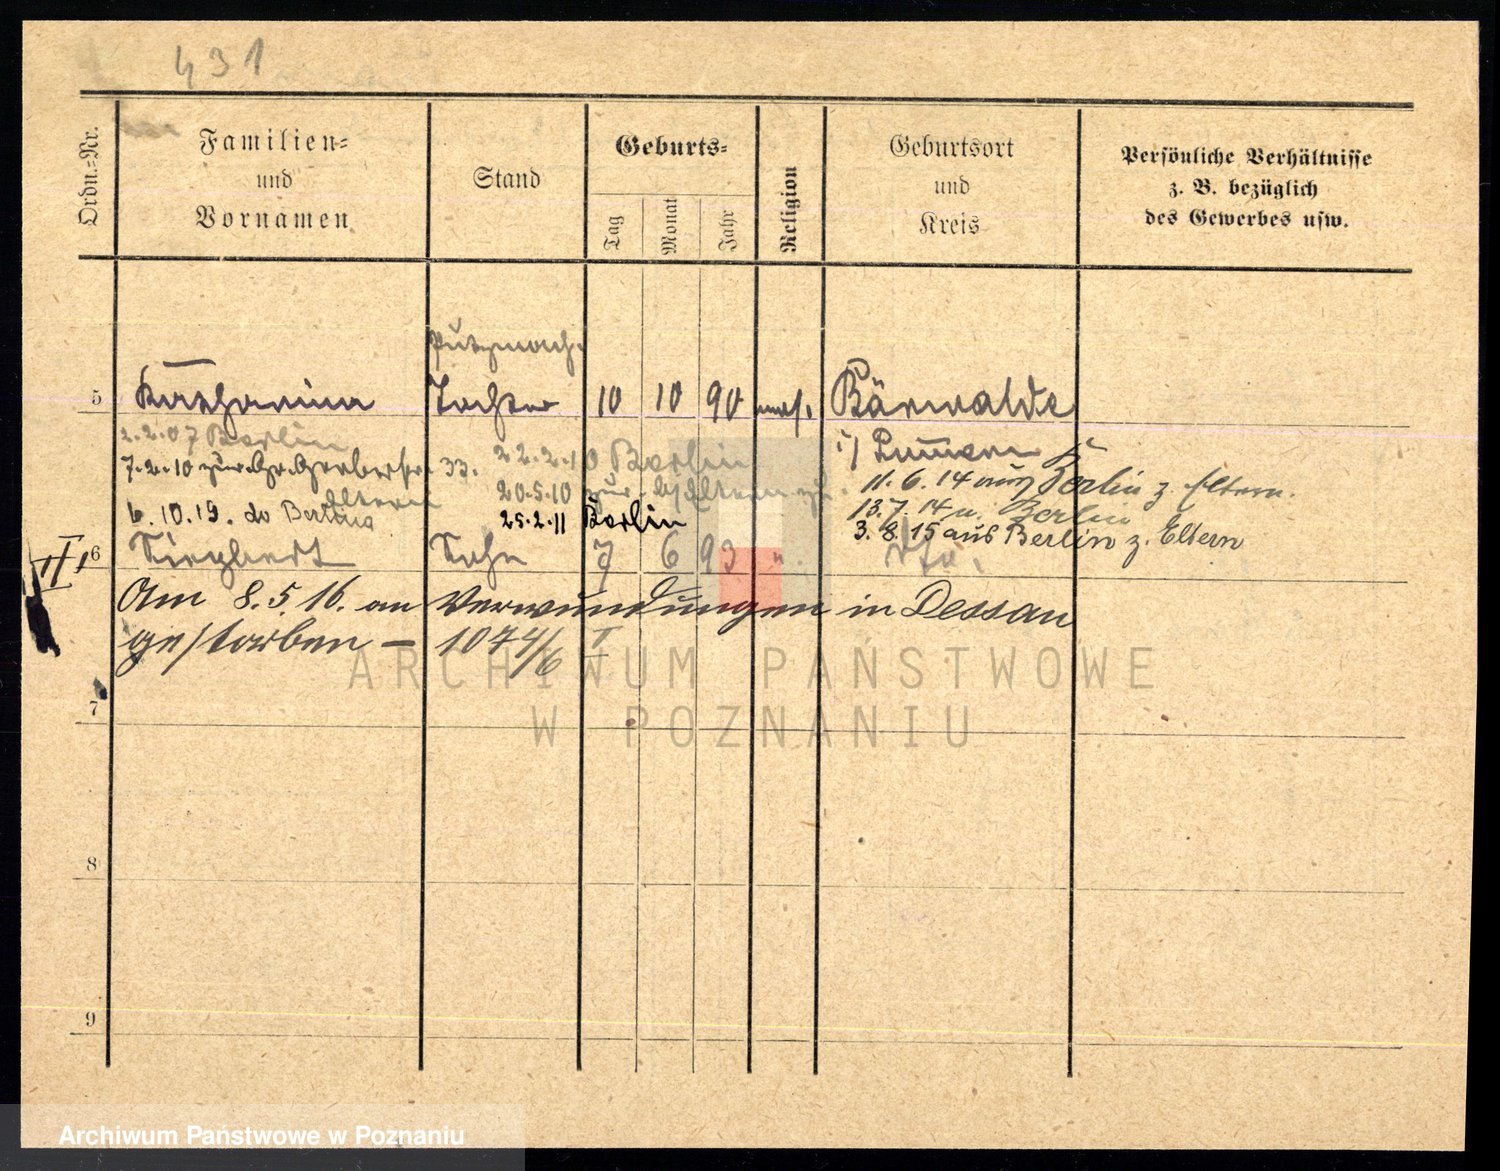 431
Ordn.-Nr.
Familien-
und
Vornamen
Stand
Geburts-
Tag
Monat
Jahr
Religion
Geburtsort
und
Kreis
Persönliche Verhältnisse
z. B. bezüglich
des Gewerbes usw.
Putzmach.
5 Katharina Tochter 10 10 90 mos. Bärwalde
2.2.07 Berlin
i/ Pommern
7.2.10 zur 33. 22.2.10 Berlin
11.6.14 aus Berlin z. Eltern.
Eltern 20.5.10 zur Eltern
13.7.14 n. Berlin
6.10.19. do Berlin 25.2.11 Berlin
3.8.15 aus Berlin z. Eltern
II 6 Siegbert Sohn 7 6 93 ".
Am 8.5.16. an Verwundungen in Dessau
gestorben – 1074/6 I
ARCHIWUM PAŃSTWOWE
W POZNANIU
7
8
9
Archiwum Państwowe w Poznaniu